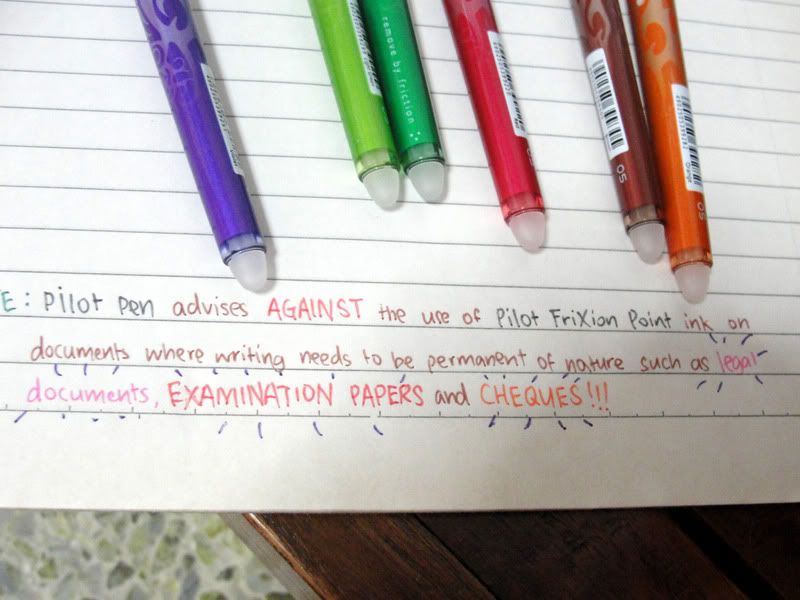 remove by friction
05
Orange
05
E: Pilot Pen advises AGAINST the use of Pilot FriXion Point ink on
documents where writing needs to be permanent of nature such as legal
documents, EXAMINATION PAPERS and CHEQUES!!!